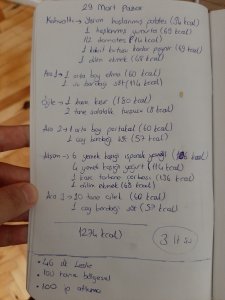 29 Mart Pazar
Kahvaltı → Yarım haşlanmış patates (50 kcal)
1 haşlanmış yumurta (69 kcal)
1/2 domates (14 kcal)
1 kibrit kutusu kadar peynir (69 kcal)
1 dilim ekmek (68 kcal)
Ara 1 → 1 orta boy elma (60 kcal)
1 su bardağı süt (114 kcal)
Öğle → 1 kase (180 kcal)
2 tane salatalık turşusu (8 kcal)
Ara 2 → 1 orta boy portakal (60 kcal)
1 çay bardağı süt (57 kcal)
Akşam → 6 yemek kaşığı ıspanak yemeği (kcal)
4 yemek kaşığı yoğurt (114 kcal)
1 kase tarhana çorbası (136 kcal)
1 dilim ekmek (68 kcal)
Ara 3 → 10 tane çilek (60 kcal)
1 çay bardağı süt (57 kcal)
1274 kcal)
3 lt su
• 100 tane
• 100 ip atlama